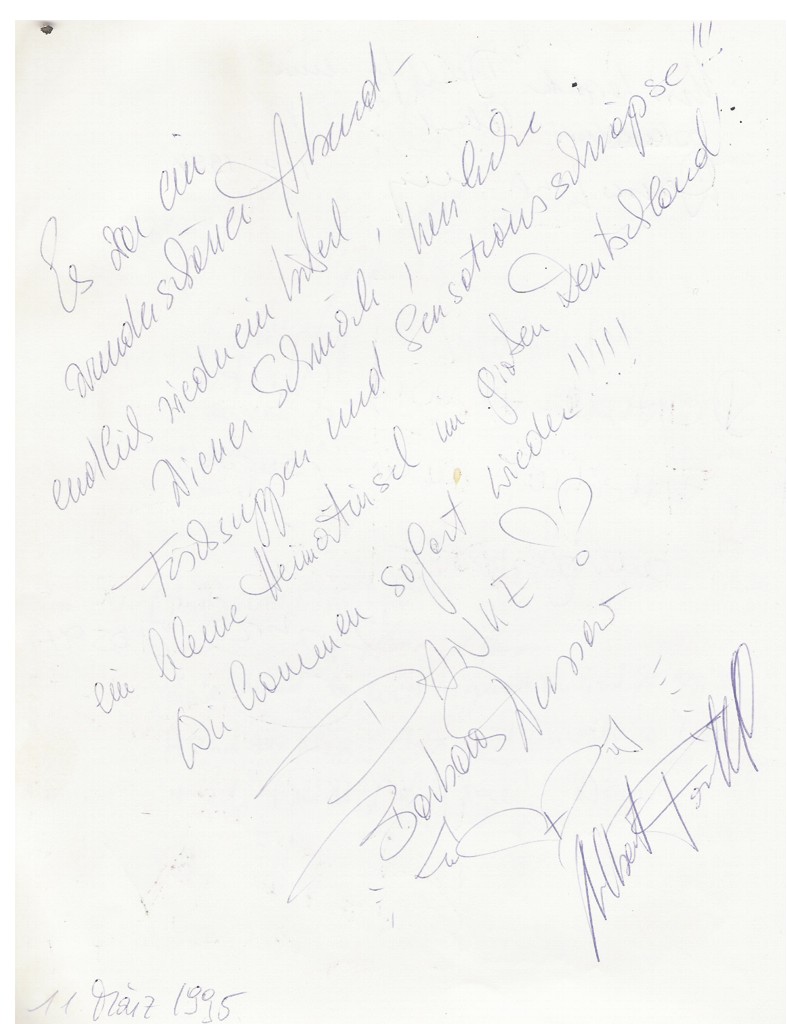 Es war ein
wunderschöner Abend -
endlich wieder ein bisserl
Wiener Schmäh, herrliche
Festsuppen und Sensationsschnäpse!!!
ein kleine Heimatinsel im großen Deutschland!
Wir kommen sofort wieder!!!!!
DANKE
Barbara Wussow
Albert Fortell
11 März 1995